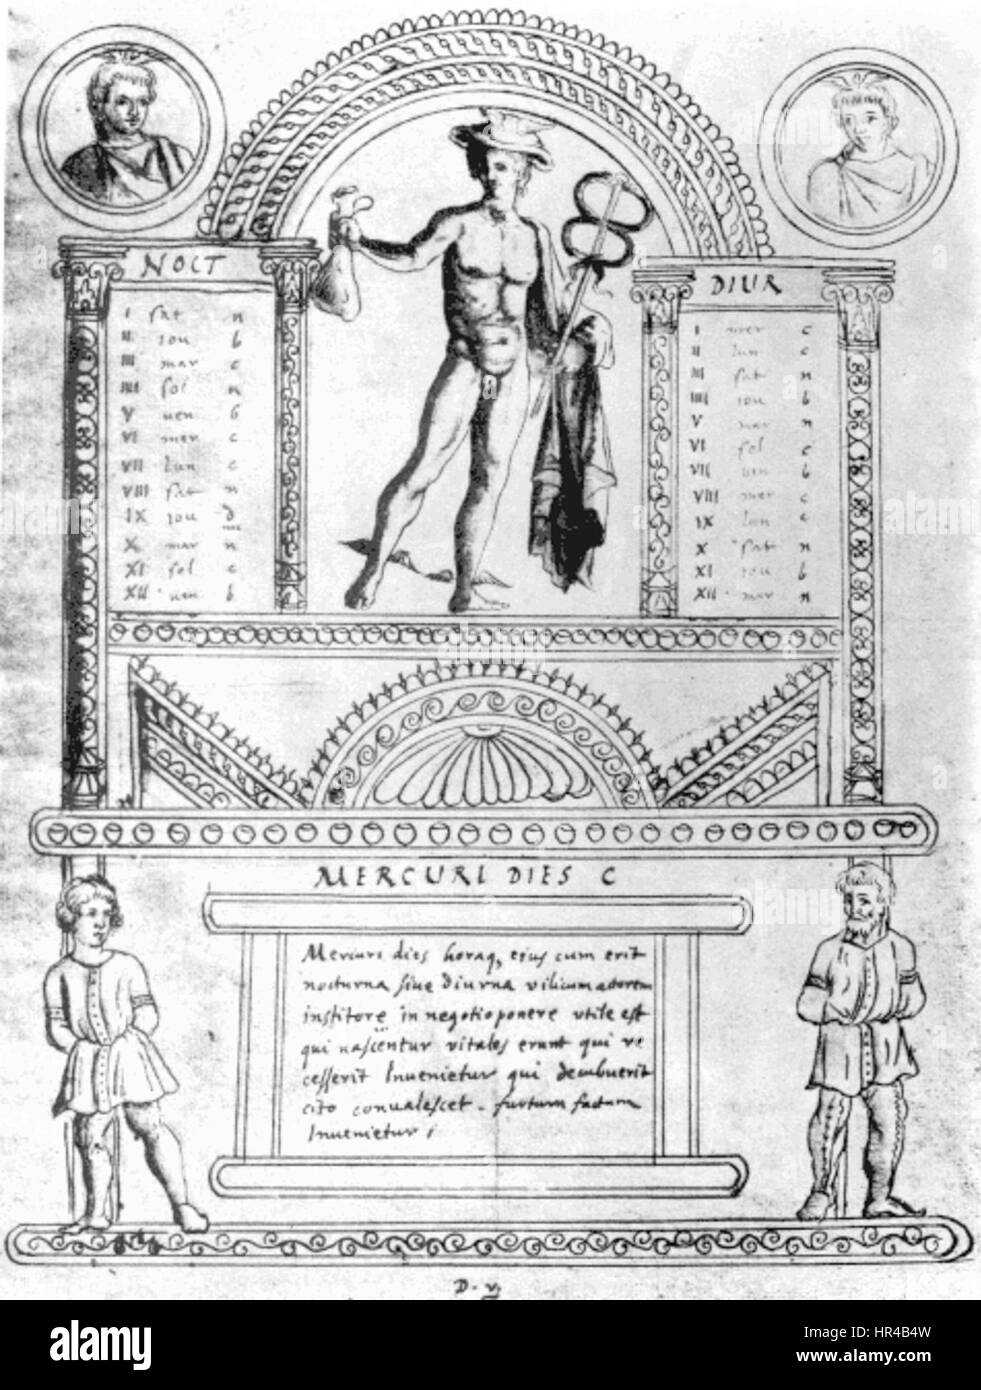 NOCT
I sat n
II iou b
III mar c
IIII sol n
V uen b
VI mer c
VII lun c
VIII sat n
IX iou
X mar n
XI sol c
XII uen b
DIUR
I mer c
II lun c
III sat n
IIII iou b
V mar n
VI sol c
VII uen b
VIII mer c
IX lun c
X sat n
XI iou b
XII mar n
MERCURI DIES C
Mercuri dies horaq, eius cum erit
nocturna siue Diurna vilicum actorem
institore in negotio ponere utile est
qui nascentur vitales erunt qui re
cesserit Inuenietur qui decubuerit
cito conualescet. furtum factum
Inuenietur
D. v.
alamy
Image ID: HR4B4W
www.alamy.com